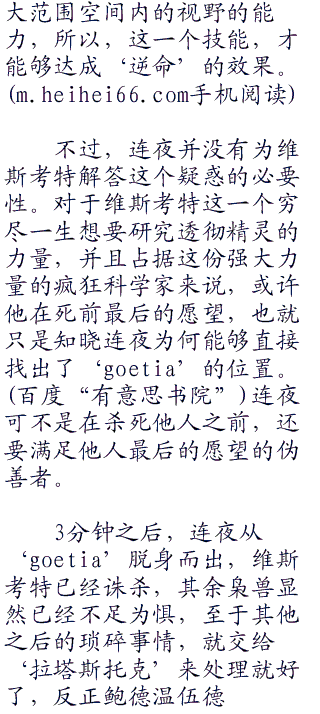 大范围空间内的视野的能
力，所以，这一个技能，才
能够达成‘逆命’的效果。
(m.heihei66.com手机阅读)
不过，连夜并没有为维
斯考特解答这个疑惑的必要
性。对于维斯考特这一个穷
尽一生想要研究透彻精灵的
力量，并且占据这份强大力
量的疯狂科学家来说，或许
他在死前最后的愿望，也就
只是知晓连夜为何能够直接
找出了‘goetia’的位置。
(百度“有意思书院”)连夜
可不是在杀死他人之前，还
要满足他人最后的愿望的伪
善者。
3分钟之后，连夜从
‘goetia’脱身而出，维斯
考特已经诛杀，其余枭兽显
然已经不足为惧，至于其他
之后的琐碎事情，就交给
‘拉塔斯托克’来处理就好
了，反正鲍德温伍德